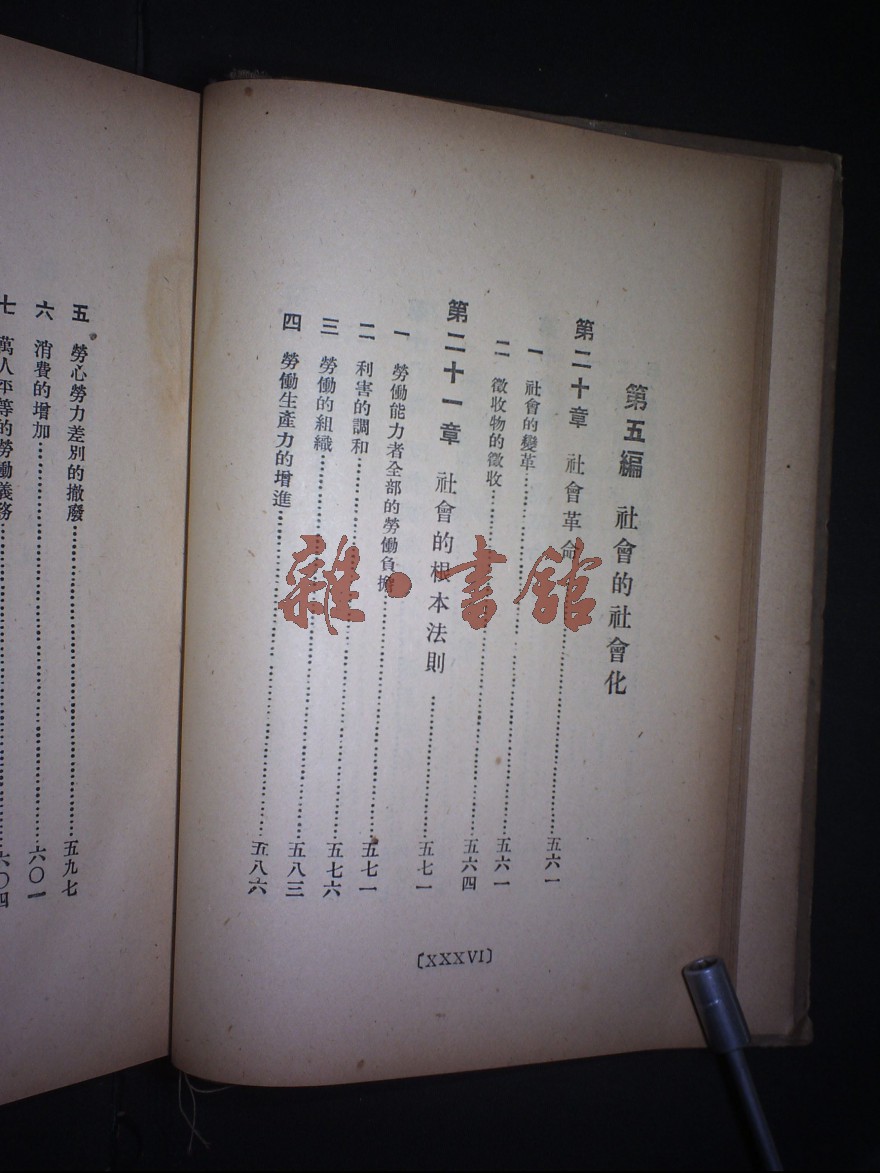 第五編 社會的社會化
第二十章 社會革命……五六一
一 社會的變革……五六一
二 徵收物的徵收……五六四
第二十一章 社會的根本法則……五七一
一 勞働能力者全部的勞働負擔……五七一
二 利害的調和……五七六
三 勞働的組織……五八三
四 勞働生產力的增進……五八六
〔XXXVI〕
五 勞心勞力差別的撤廢……五九七
六 消費的增加……六〇一
七 萬人平等的勞働義務……六〇四
雜·書館